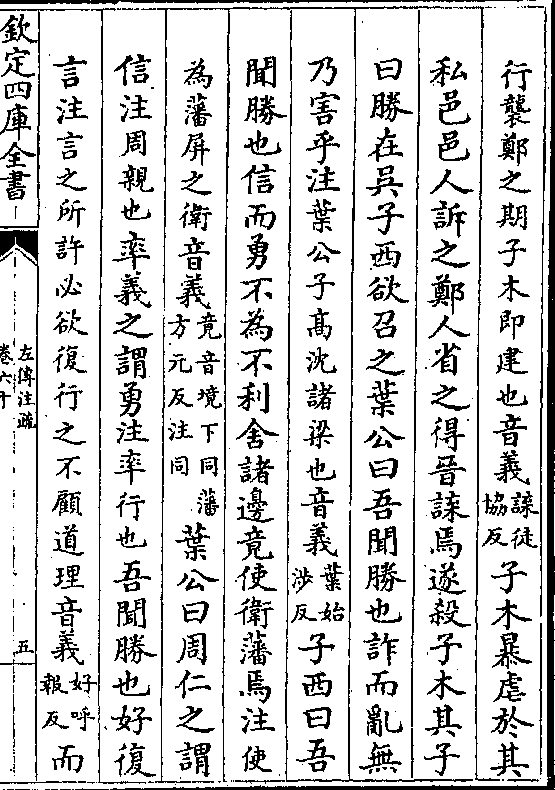 行襲鄭之期子木即建也音義諜徒協反子木暴虐於其
私邑邑人訴之鄭人省之得晉諜焉遂殺子木其子
曰勝在吳子西欲召之葉公曰吾聞勝也詐而亂無
乃害乎注葉公子高沈諸梁也音義葉始涉反子西曰吾
聞勝也信而勇不為不利舍諸邊竟使衛藩焉注使
為藩屏之衛音義竟音境下同藩方元反注同葉公曰周仁之謂
信注周親也率義之謂勇注率行也吾聞勝也好復
言注言之所許必欲復行之不顧道理音義好呼報反而
欽定四庫全書
左傳注疏
卷六十
五